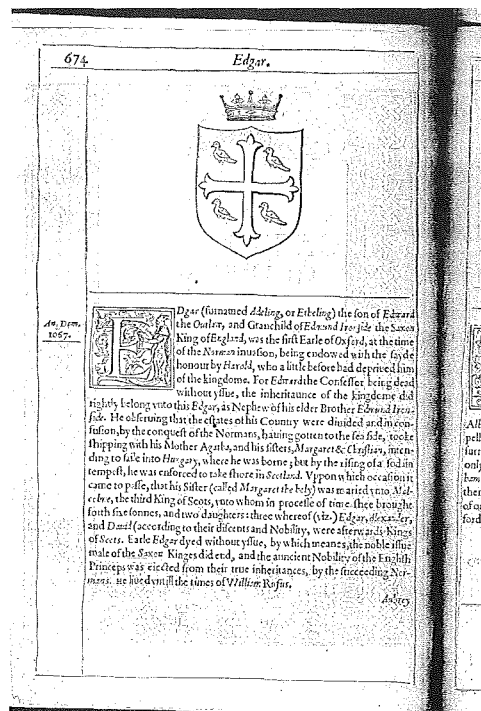 674
Edgar.
An. Dom.
1067.
EDgar (surnamed Adeling, or Etheling) the son of Edward
the Outlaw, and Granchild of Edmund Ironside the Saxon
King of England, was the first Earle of Oxford, at the time
of the Norman inuasion, being endowed with the sayde
honour by Harold, who a little before had depriued him
of the kingdome. For Edward the Confessor being dead
without yssue, the inheritaunce of the kingdome did
rightly belong vnto this Edgar, as Nephew of his elder Brother Edmund Iron-
side. He obseruing that the estates of his Country were diuided and in con-
fusion, by the conquest of the Normans, hauing gotten to the sea side, tooke
shipping with his Mother Agatha, and his sisters, Margaret & Christian, inten-
ding to saile into Hungary, where he was borne; but by the rising of a sodain
tempest, he was enforced to take shore in Scotland. Vppon which occasion it
came to passe, that his Sister (called Margaret the holy) was maried vnto Mal-
colme, the third King of Scots, vnto whom in processe of time shee brought
forth sixe sonnes, and two daughters: three whereof (viz.) Edgar, Alexander,
and Dauid (according to their discents and Nobility, were afterwards Kings
of Scots. Earle Edgar dyed without yssue, by which meanes, the noble issue
male of the Saxon Kinges did end, and the auncient Nobility of the English
Princeps was eiected from their true inheritances, by the succeeding Nor-
mans. He liued vntill the times of William Rufus.
Aubrey
pell
furr
only
ham
ther
of
ford